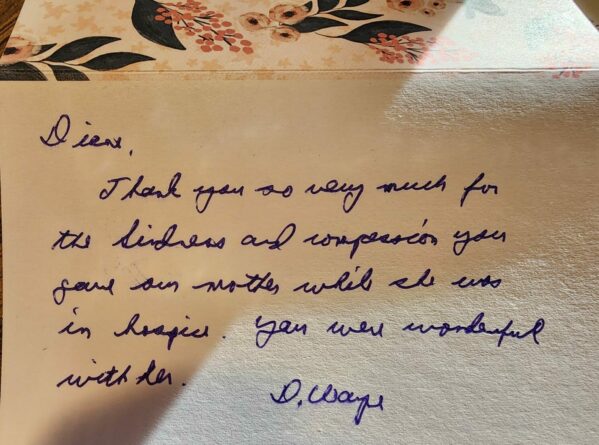 Diane,
Thank you so very much for
the kindness and compassion you
gave our mother while she was
in hospice. You were wonderful
with her.
D. Wayne